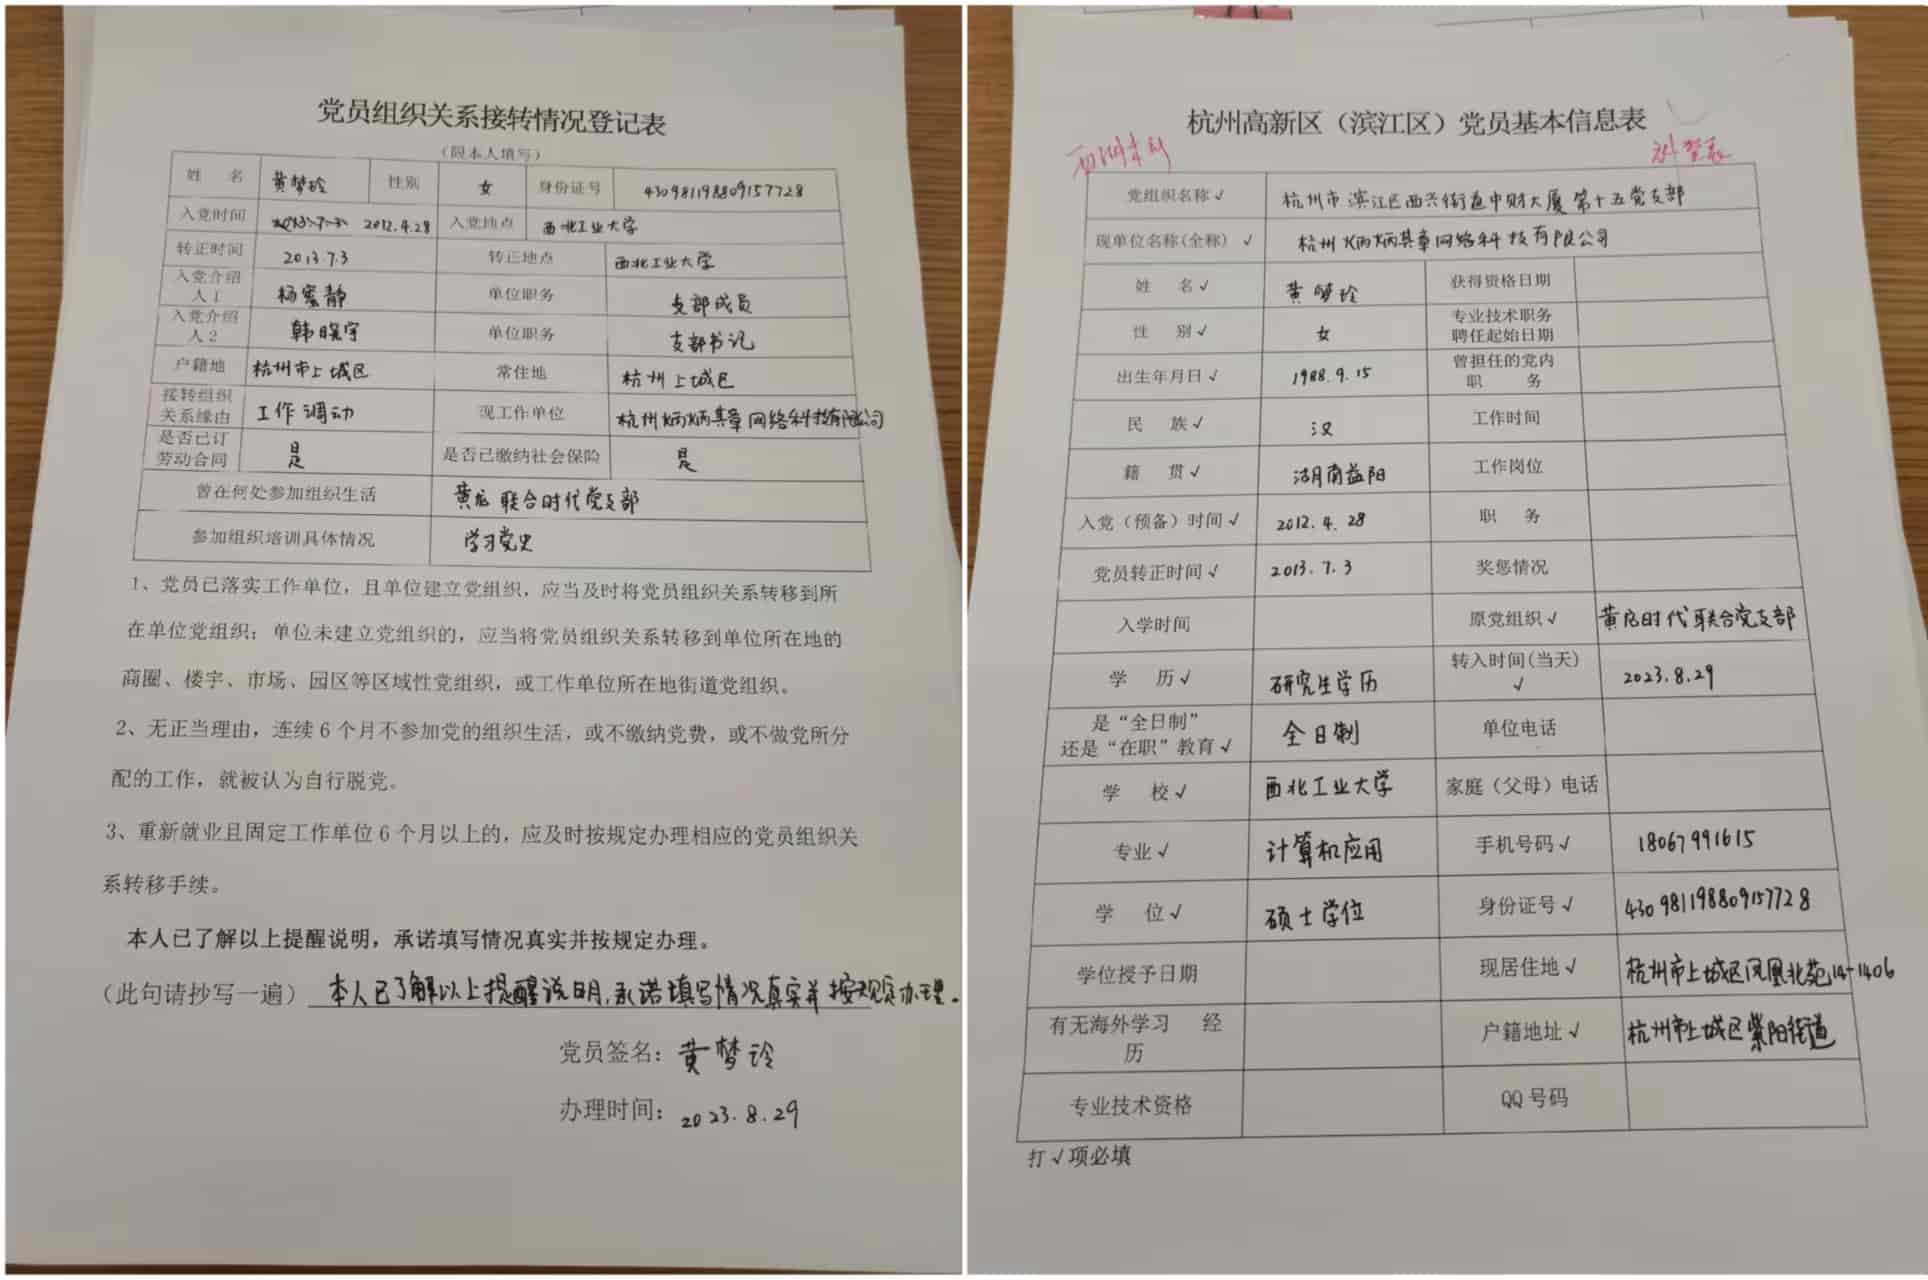 党员组织关系接转情况登记表
(限本人填写)
姓 名 黄梦玲 性别 女 身份证号 430981198809157728
入党时间 2012.4.28 入党地点 西北工业大学
转正时间 2013.7.3 转正地点 西北工业大学
入党介绍人1 杨蜜静 单位职务 支部成员
入党介绍人2 韩晓宇 单位职务 支部书记
户籍地 杭州市上城区 常住地 杭州上城区
接转组织关系缘由 工作调动 现工作单位 杭州炳炳其章网络科技有限公司
是否已订劳动合同 是 是否已缴纳社会保险 是
曾在何处参加组织生活 黄龙联合时代党支部
参加组织培训具体情况 学习党史
1、党员已落实工作单位，且单位建立党组织，应当及时将党员组织关系转移到所
在单位党组织；单位未建立党组织的，应当将党员组织关系转移到单位所在地的
商圈、楼宇、市场、园区等区域性党组织，或工作单位所在地街道党组织。
2、无正当理由，连续6个月不参加党的组织生活，或不缴纳党费，或不做党所分
配的工作，就被认为自行脱党。
3、重新就业且固定工作单位6个月以上的，应及时按规定办理相应的党员组织关
系转移手续。
本人已了解以上提醒说明，承诺填写情况真实并按规定办理。
(此句请抄写一遍) 本人已了解以上提醒说明,承诺填写情况真实并按规定办理.
党员签名：黄梦玲
办理时间：2023.8.29
杭州高新区（滨江区）党员基本信息表
党组织名称√ 杭州市滨江区西兴街道中财大厦第十五党支部
现单位名称(全称) √ 杭州炳炳其章网络科技有限公司
姓 名√ 黄梦玲 获得资格日期
性 别√ 女 专业技术职务聘任起始日期
出生年月日√ 1988.9.15 曾担任的党内职 务
民 族√ 汉 工作时间
籍 贯√ 湖南益阳 工作岗位
入党（预备）时间√ 2012.4.28 职 务
党员转正时间√ 2013.7.3 奖惩情况
入学时间 原党组织√ 黄龙时代联合党支部
学 历√ 研究生学历 转入时间(当天)√ 2023.8.29
是“全日制”还是“在职”教育√ 全日制 单位电话
学 校√ 西北工业大学 家庭（父母）电话
专业√ 计算机应用 手机号码√ 18067991615
学 位√ 硕士学位 身份证号√ 430981198809157728
学位授予日期 现居住地√ 杭州市上城区凤凰北苑14-1406
有无海外学习 经历 户籍地址√ 杭州市上城区紫阳街道
专业技术资格 QQ号码
打√项必填